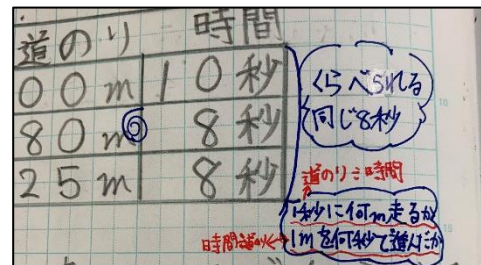 道のり 時間
00m 10秒
80m 8秒
25m 8秒
くらべられる
同じ8秒
道のり÷時間
1秒に何m走るか
時間÷道のり
1mを何秒で進んだか